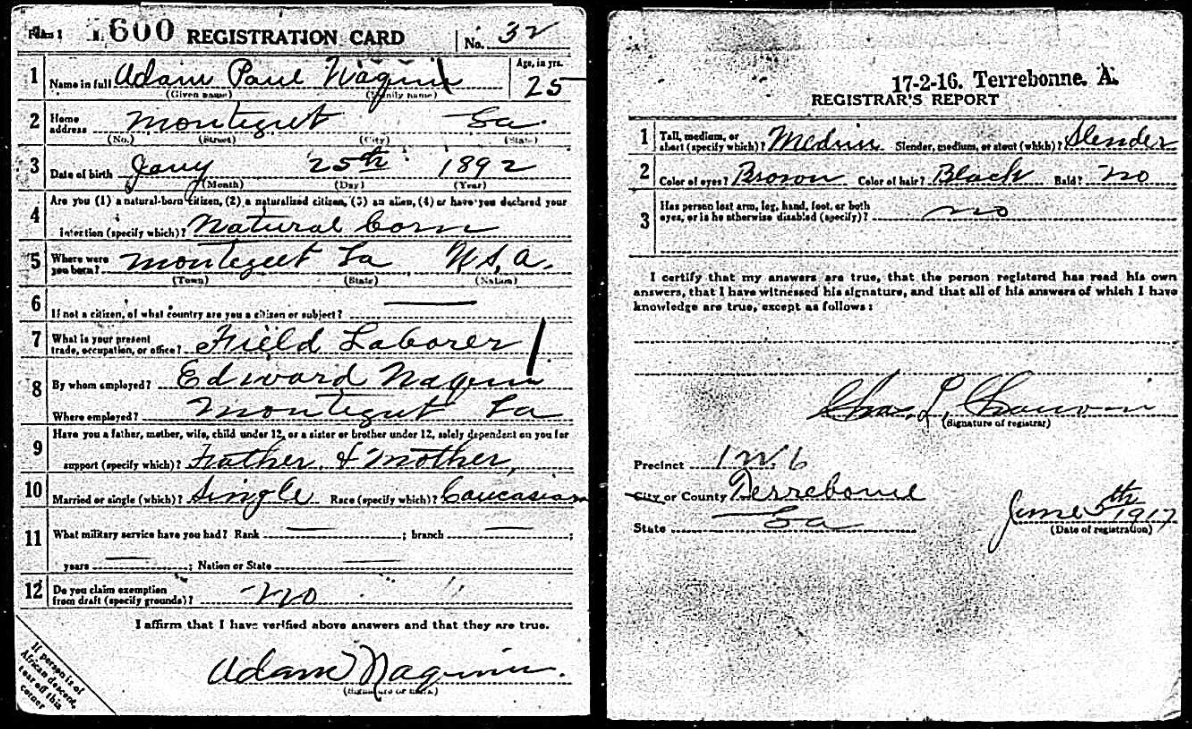 Form 1 1600 REGISTRATION CARD No. 32
1 Name in full Adam Paul Naquin Age, in yrs. 25
(Given name) (Family name)
2 Home address Montegut La.
(No.) (Street) (City) (State)
3 Date of birth Jany 25th 1892
(Month) (Day) (Year)
4 Are you (1) a natural-born citizen, (2) a naturalized citizen, (3) an alien, (4) or have you declared your
intention (specify which)? Natural born
5 Where were you born? Montegut La U.S.A.
(Town) (State) (Nation)
6 If not a citizen, of what country are you a citizen or subject?
7 What is your present trade, occupation, or office? Field Laborer
8 By whom employed? Edward Naquin
Where employed? Montegut La
9 Have you a father, mother, wife, child under 12, or a sister or brother under 12, solely dependent on you for
support (specify which)? Father & Mother,
10 Married or single (which)? Single Race (specify which)? Caucasian
11 What military service have you had? Rank ; branch ;
years ; Nation or State
12 Do you claim exemption from draft (specify grounds)? No
I affirm that I have verified above answers and that they are true.
Adam Naquin.
(Signature or mark)
If person is of African descent, tear off this corner
17-2-16. Terrebonne, A.
REGISTRAR'S REPORT
1 Tall, medium, or short (specify which)? Medium Slender, medium, or stout (which)? Slender
2 Color of eyes? Brown Color of hair? Black Bald? No
3 Has person lost arm, leg, hand, foot, or both eyes, or is he otherwise disabled (specify)? no
I certify that my answers are true, that the person registered has read his own
answers, that I have witnessed his signature, and that all of his answers of which I have
knowledge are true, except as follows:
Chas. L. Chauvin
(Signature of registrar)
Precinct 1 W 6
City or County Terrebonne
State La
June 5th 1917
(Date of registration)